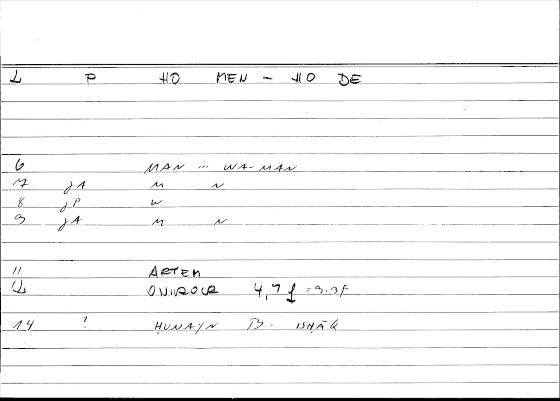 L P HO MEN - HO DE
6 MAN ... WA-MAN
7 gA M N
8 gP W
9 gA M N
11 ARTEM
12 ONIROCR 4,7 = 3.3F
14 ? ḤUNAYN B. ISḤĀQ